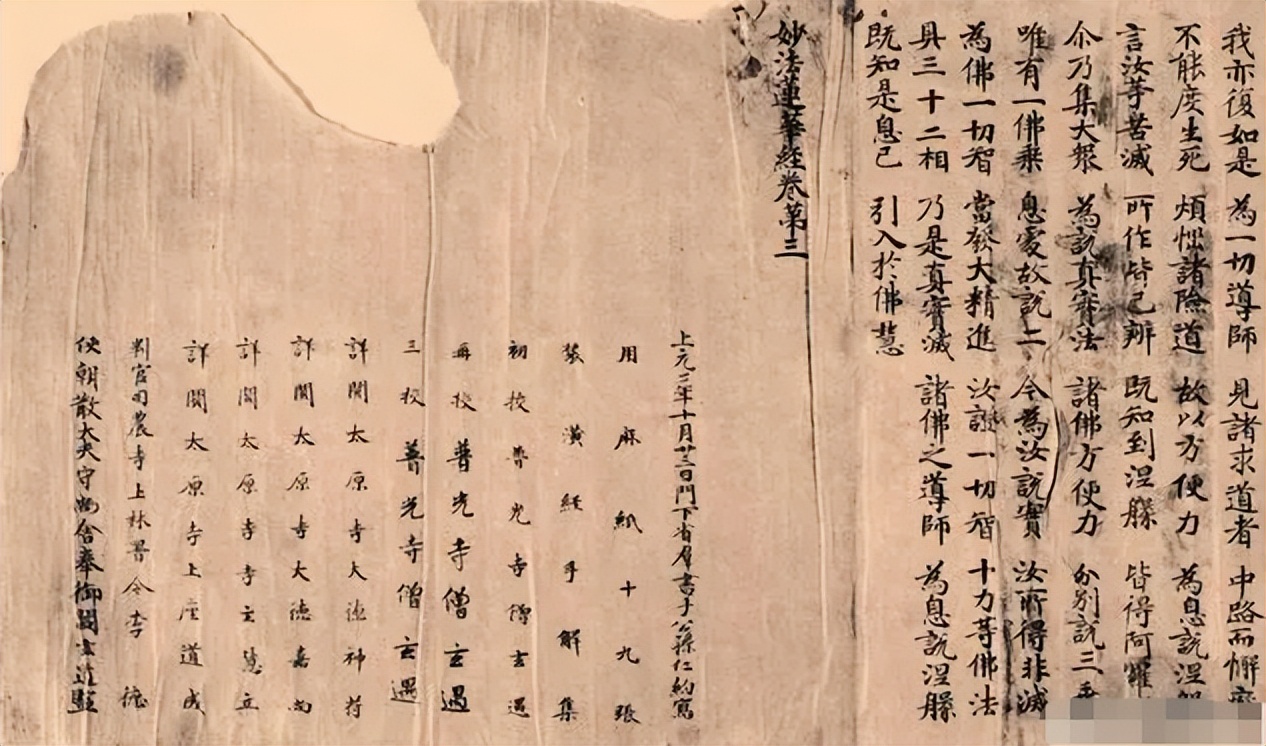 我亦復如是 為一切導師 見諸求道者 中路而懈廢
不能度生死 煩惱諸險道 故以方便力 為息說涅槃
言汝等苦滅 所作皆已辦 既知到涅槃 皆得阿羅
尒乃集大眾 為說真實法 諸佛方便力 分別說三乘
唯有一佛乘 息處故說二 今為汝說實 汝所得非滅
為佛一切智 當發大精進 汝證一切智 十力等佛法
具三十二相 乃是真實滅 諸佛之導師 為息說涅槃
既知是息已 引入於佛慧
妙法蓮華經卷第三
上元三年十月廿三日門下省群書手公孫仁約寫
用麻紙十九張
裝潢經手解集
初校普光寺僧玄遇
再校普光寺僧玄遇
三校普光寺僧玄遇
詳閱太原寺大德神符
詳閱太原寺大德嘉尚
詳閱太原寺寺主慧立
詳閱太原寺上座道成
判官司農寺上林署令李德
使朝散大夫守尚舍奉御閻玄道監